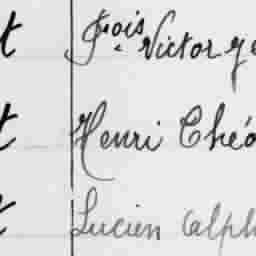 t Fois Victor Je
t Henri Théo
t Lucien Alph